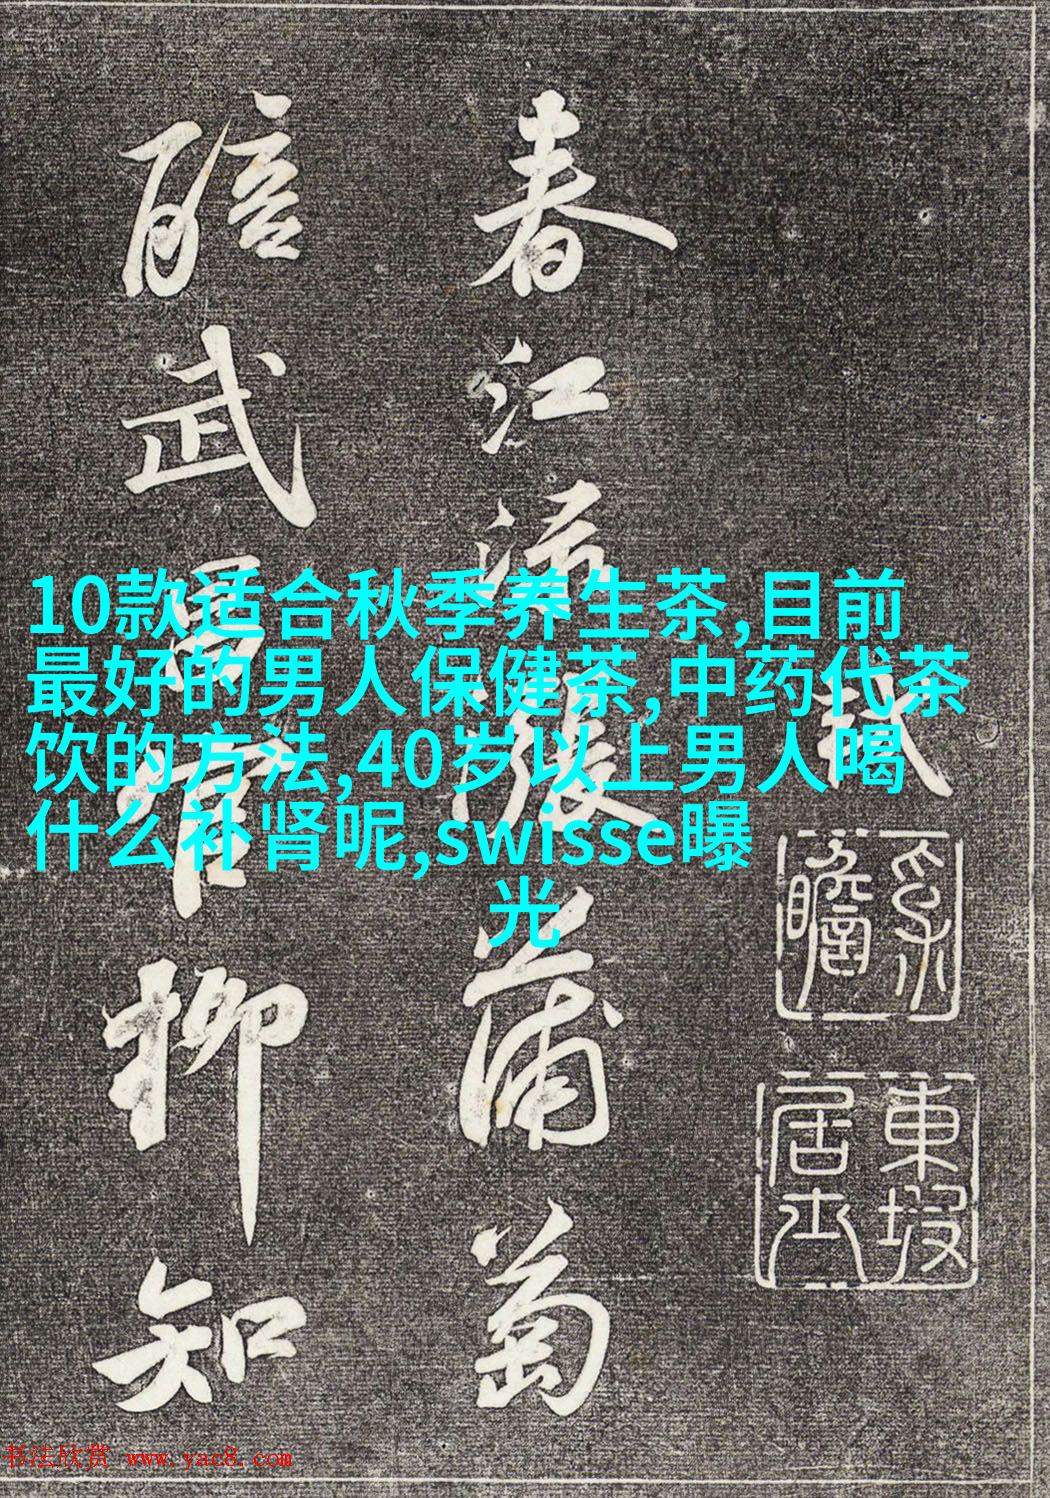 軾
春江淥漲蒲萄
醅武昌官柳知
東坡
居士
10款适合秋季养生茶,目前
最好的男人保健茶,中药代茶
饮的方法,40岁以上男人喝
什么补肾呢,swisse曝
光
书法欣赏 www.yac8.com